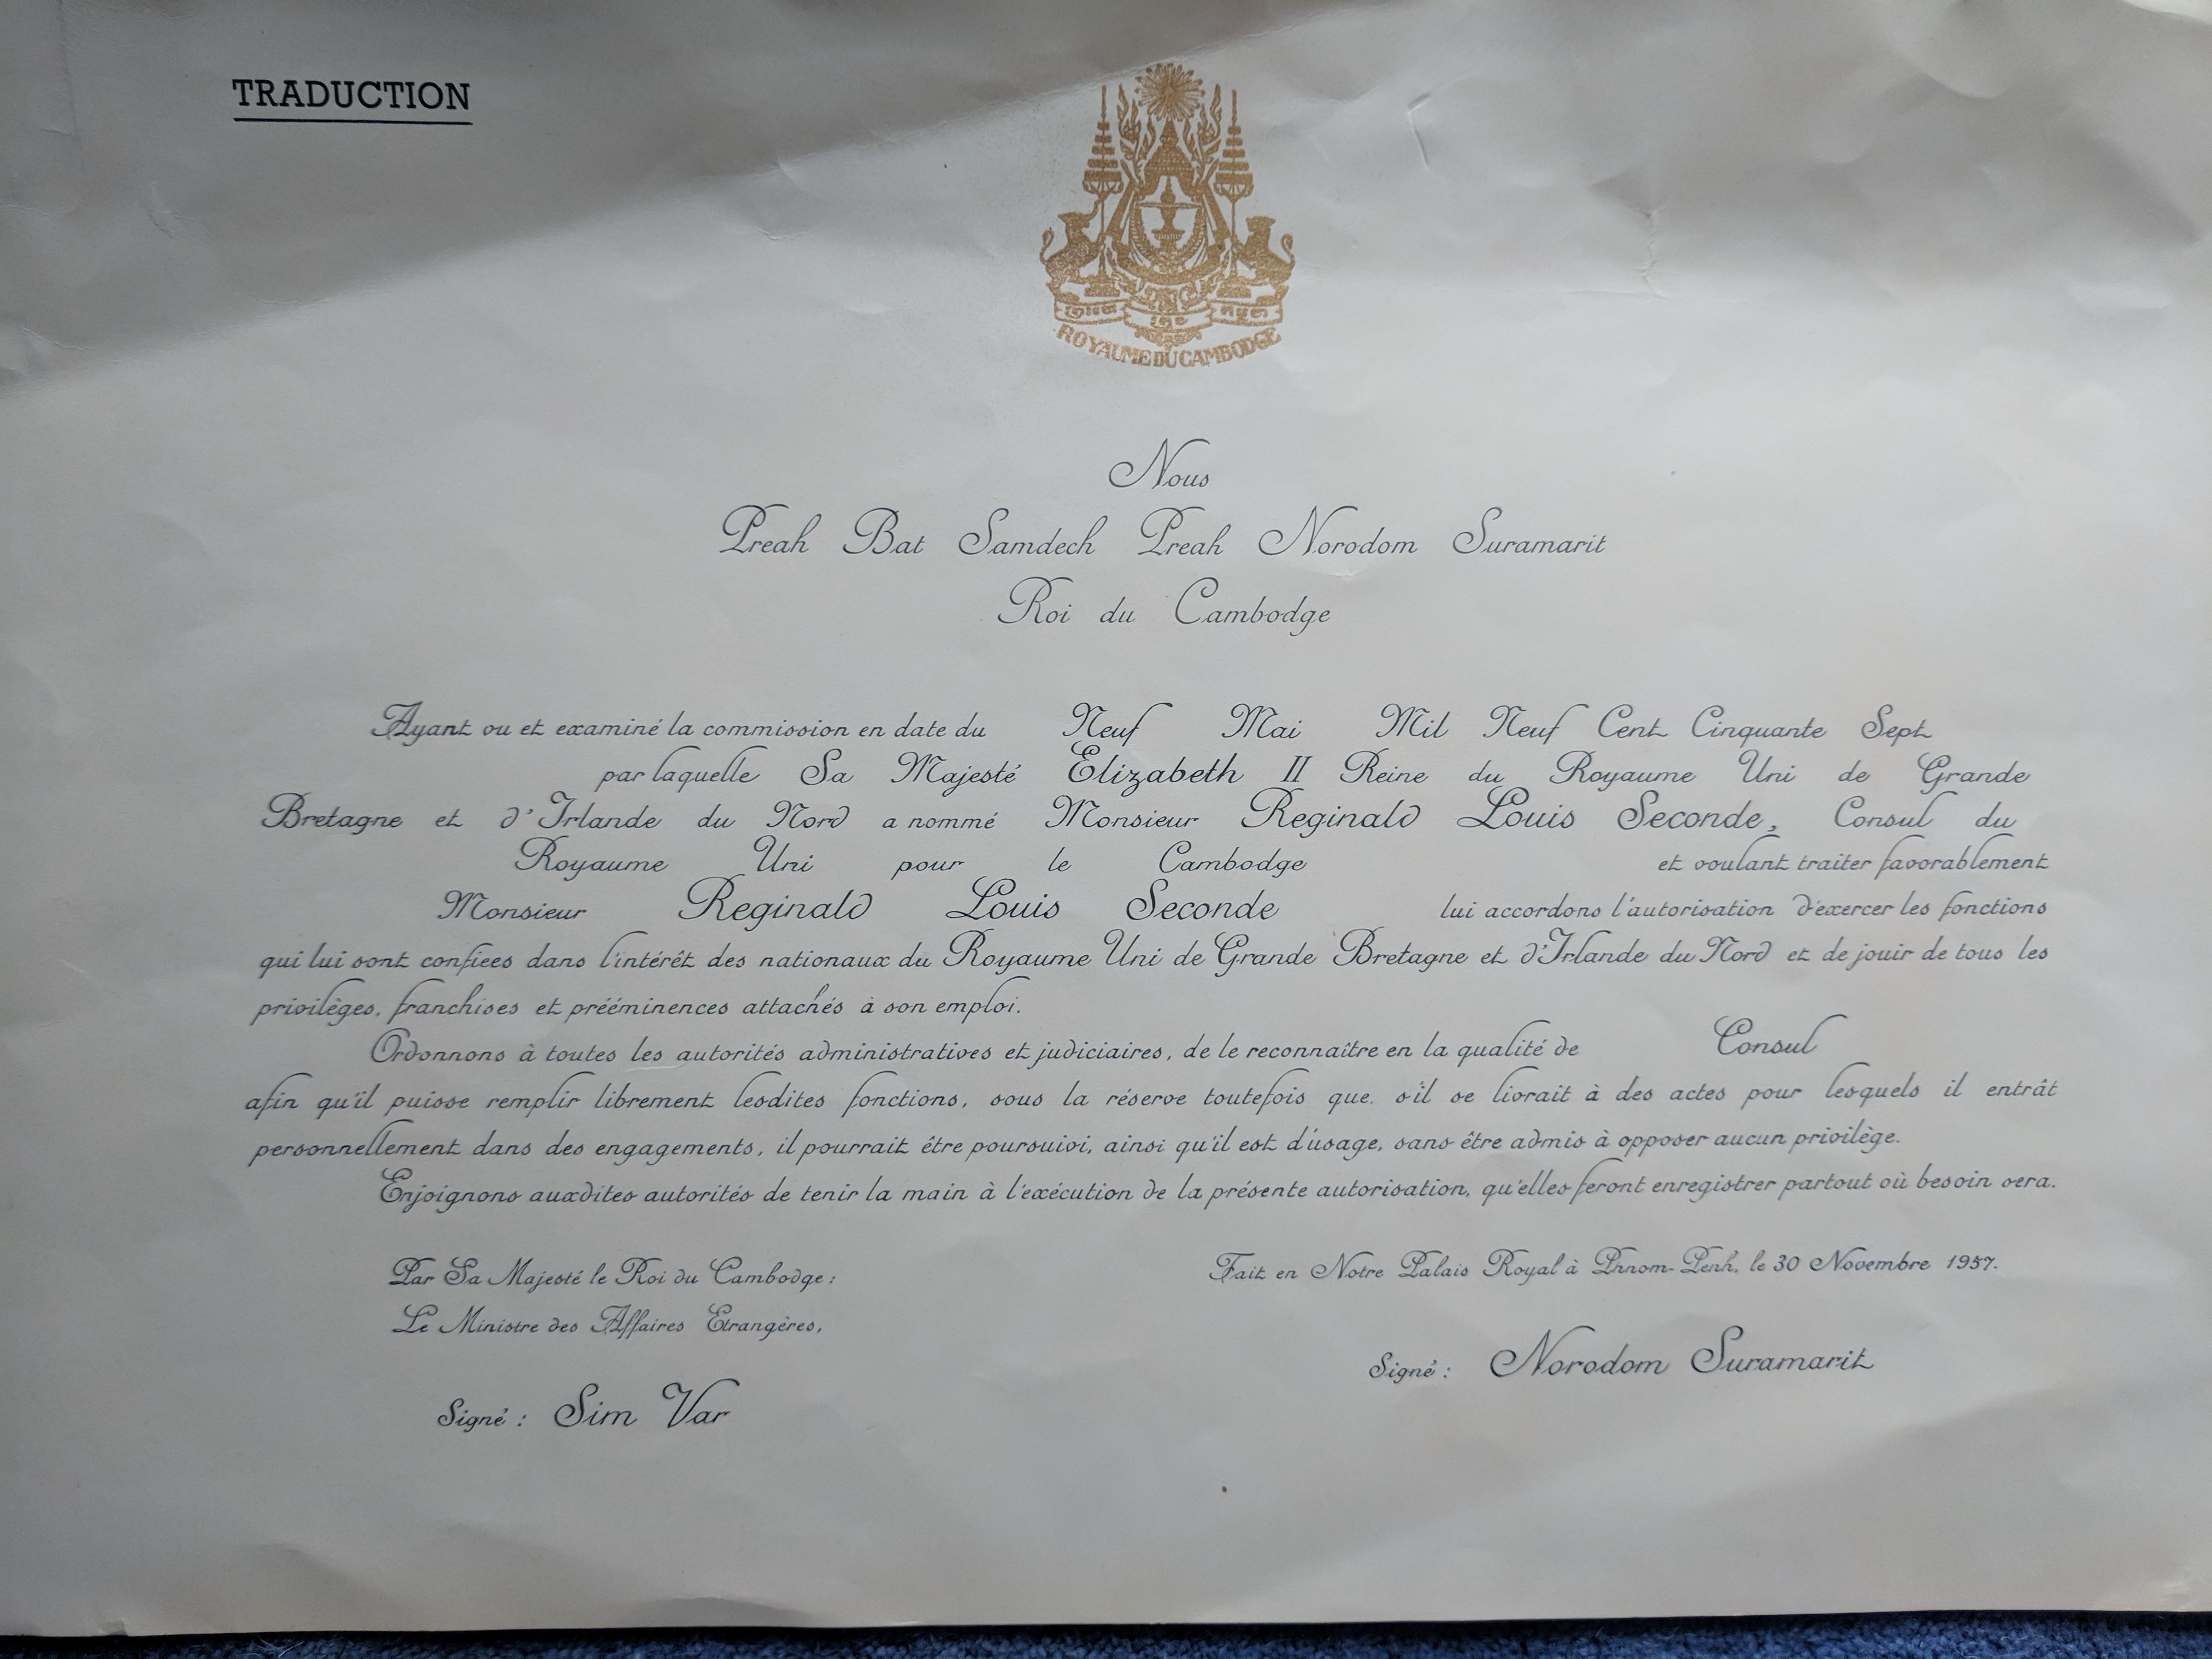 TRADUCTION
ROYAUME DU CAMBODGE
Nous
Preah Bat Samdech Preah Norodom Suramarit
Roi du Cambodge
Ayant vu et examiné la commission en date du Neuf Mai Mil Neuf Cent Cinquante Sept
par laquelle Sa Majesté Elizabeth II Reine du Royaume Uni de Grande
Bretagne et d'Irlande du Nord a nommé Monsieur Reginald Louis Seconde, Consul du
Royaume Uni pour le Cambodge et voulant traiter favorablement
Monsieur Reginald Louis Seconde lui accordons l'autorisation d'exercer les fonctions
qui lui sont confiees dans l'intérêt des nationaux du Royaume Uni de Grande Bretagne et d'Irlande du Nord et de jouir de tous les
privilèges, franchises et prééminences attachés à son emploi.
Ordonnons à toutes les autorités administratives et judiciaires, de le reconnaître en la qualité de Consul
afin qu'il puisse remplir librement lesdites fonctions, sous la réserve toutefois que, s'il se livrait à des actes pour lesquels il entrât
personnellement dans des engagements, il pourrait être poursuivi, ainsi qu'il est d'usage, sans être admis à opposer aucun privilège.
Enjoignons auxdites autorités de tenir la main à l'exécution de la présente autorisation, qu'elles feront enregistrer partout où besoin sera.
Par Sa Majesté le Roi du Cambodge :
Le Ministre des Affaires Etrangères,
Signé : Sim Var
Fait en Notre Palais Royal à Phnom-Penh, le 30 Novembre 1957.
Signé : Norodom Suramarit